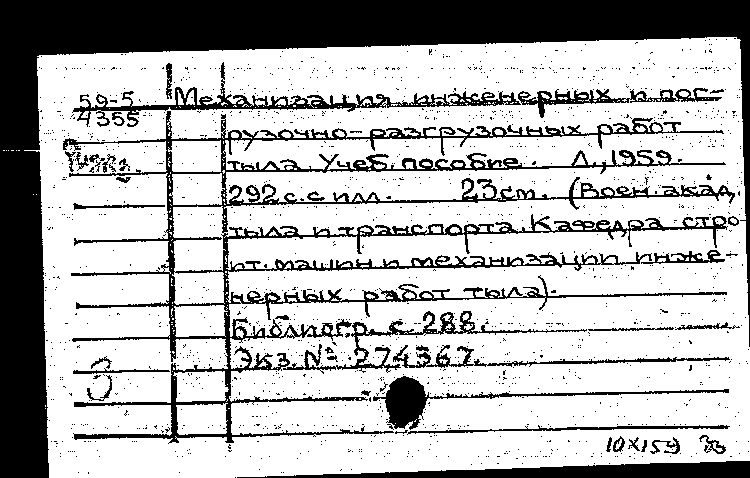 59-5
4355
Механизация инженерных и пог-
рузочно-разгрузочных работ
тыла. Учеб. пособие. Л., 1959.
292 с. с илл. 23 см. (Воен. акад.
тыла и транспорта. Кафедра стро-
ит. машин и механизации инже-
нерных работ тыла).
Библиогр. с 288.
Экз. № 274367.
3
10 X 159